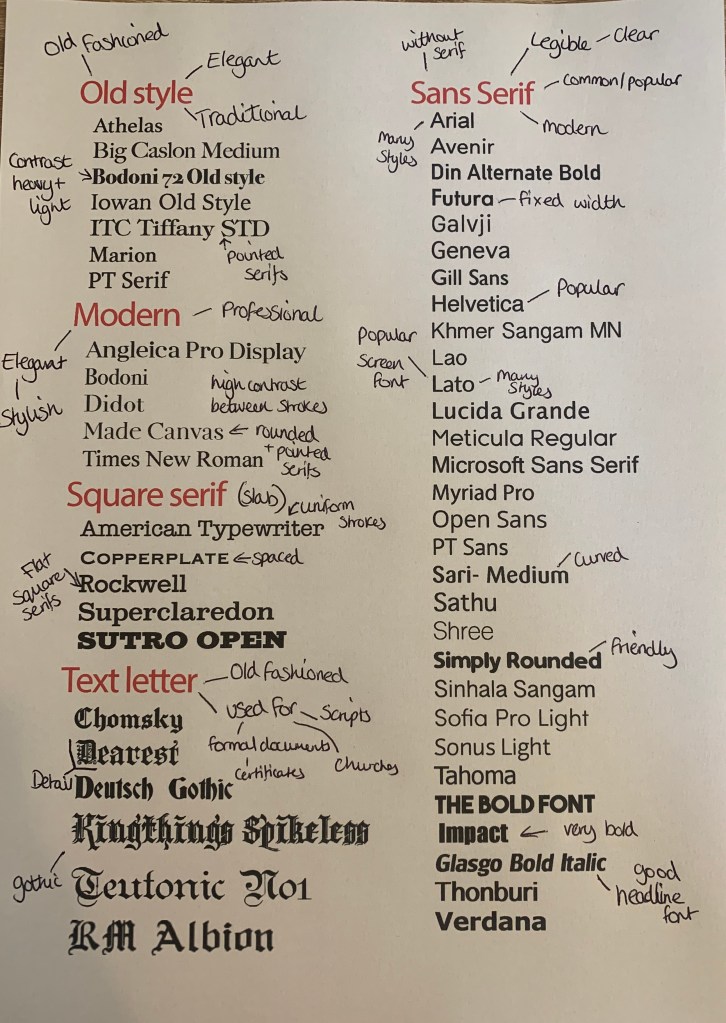 Old fashioned
Elegant
Old style
Traditional
Athelas
Big Caslon Medium
Contrast
heavy +
light
Bodoni 72 Old style
Iowan Old Style
ITC Tiffany STD
pointed
serifs
Marion
PT Serif
Modern
Professional
Elegant
Stylish
Angleica Pro Display
Bodoni
Didot
high contrast
between strokes
Made Canvas
rounded
+ pointed
serifs
Times New Roman
Square serif (slab)
uniform
strokes
American Typewriter
COPPERPLATE
spaced
Flat
square
serifs
Rockwell
Superclaredon
SUTRO OPEN
Text letter
Old fashioned
used for
Scripts
formal documents
certificates
Churches
Chomsky
Dearest
Detail
Deutsch Gothic
Kingthings Spikeless
gothic
Teutonic No1
RM Albion
without
serif
Legible - Clear
Sans Serif
common/popular
modern
Many
Styles
Arial
Avenir
Din Alternate Bold
Futura
fixed width
Galvji
Geneva
Gill Sans
Helvetica
Popular
Khmer Sangam MN
Popular
Screen
font
Lao
Lato
Many
Styles
Lucida Grande
Meticula Regular
Microsoft Sans Serif
Myriad Pro
Open Sans
PT Sans
Sari- Medium
Curved
Sathu
Shree
Simply Rounded
friendly
Sinhala Sangam
Sofia Pro Light
Sonus Light
Tahoma
THE BOLD FONT
Impact
very bold
Glasgo Bold Italic
good
headline
font
Thonburi
Verdana